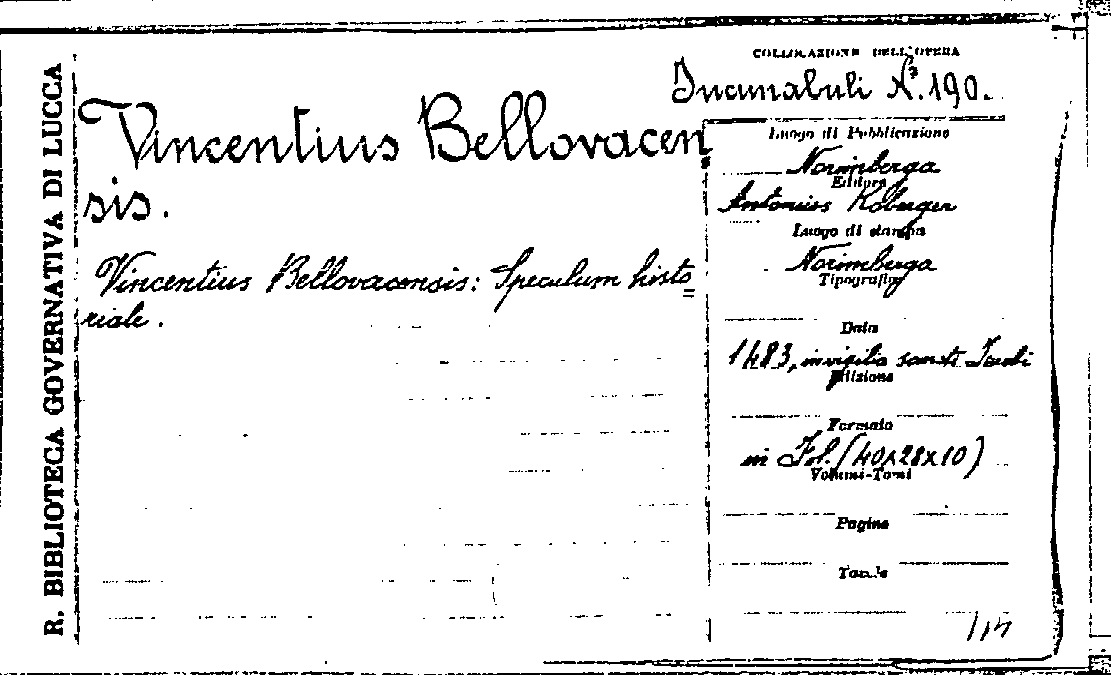 R. BIBLIOTECA GOVERNATIVA DI LUCCA
COLLOCAZIONE DELL'OPERA
Incunabuli N.º 190.
Vincentius Bellovacen
sis.
Vincentius Bellovacensis: Speculum histo=
riale.
Luogo di Pubblicazione
Norimberga
Editore
Antonius Koberger
Luogo di stampa
Norimberga
Tipografia
Data
1483, in vigilia sancti Jacobi
Edizione
Formato
in Fol. (40x28x10)
Volumi-Tomi
Pagine
Tavole